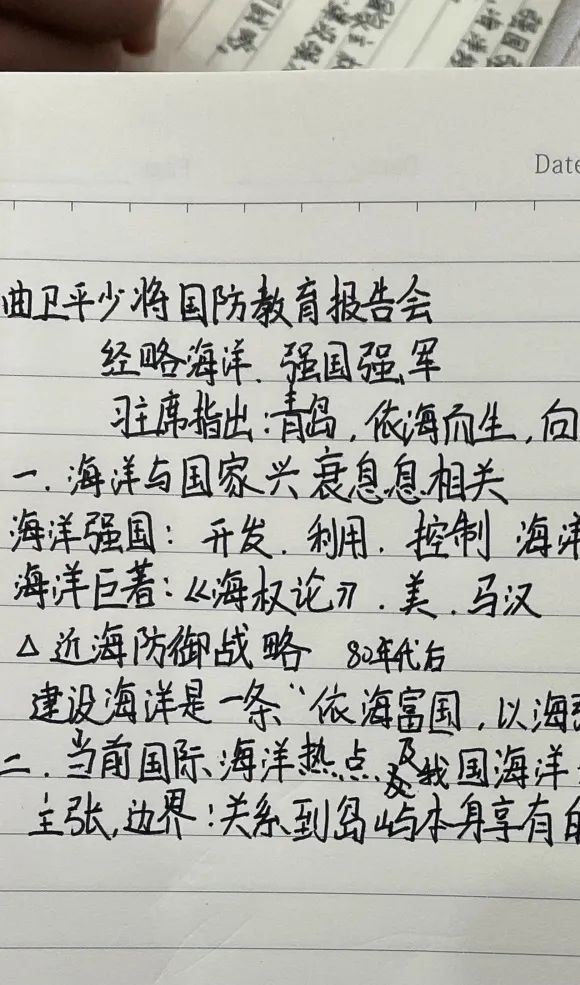 Date
曲卫平少将国防教育报告会
经略海洋.强国强军
习主席指出:青岛,依海而生,向
一.海洋与国家兴衰息息相关
海洋强国:开发.利用.控制 海洋
海洋巨著:《海权论》.美.马汉
△近海防御战略 80年代后
建设海洋是一条“依海富国,以海强
二.当前国际海洋热点及我国海洋
主张,边界:关系到岛屿本身享有的